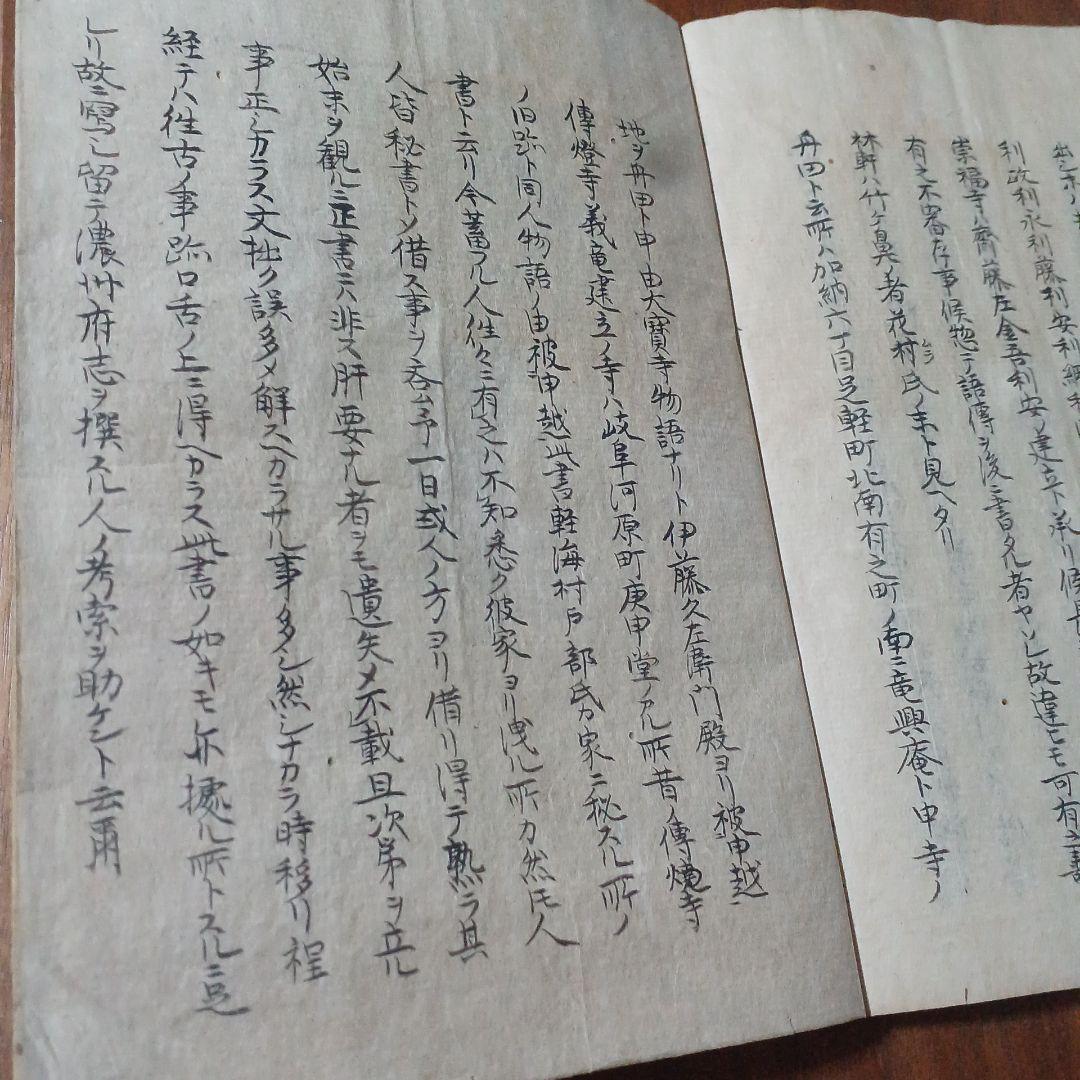 利政利永利藤利安利綱利
崇福寺ハ齊藤左金吾利安ノ建立ト承リ候
有之不審存事候惣テ語傳ヲ後ニ書タル者ヤシレ故違モ可有之
林軒ハ竹ケ鼻ノ者花村氏ノ末ト見ヘタリ
ムラ
舟田ト云所ハ加納六丁目足軽町北南有之町ノ南ニ竜興庵ト申寺ノ
地ヲ舟田ト申由大寳寺物語ナリト伊藤久左衛門殿ヨリ被申越
傳燈寺義竜建立ノ寺ハ岐阜河原町庚申堂アル所昔ノ傳燈寺
ノ旧跡ト同人物語ノ由被申越此書軽海村戸部氏カ家ニ秘スル所ノ
書ト云リ今蓄フル人往々ニ有之ハ不知悉ク彼家ヨリ洩ル所カ然𪜈人
人皆秘書トシ借ス事ヲ吝ム予一日或人ノ方ヨリ借リ得テ熟ラ其
始末ヲ観ルニ正書ニハ非ス肝要ナル者ヲモ遺失メ不載且次第ヲ立ル
事正シカラス文拙ク誤多メ解スヘカラサル事多シ然シナカラ時移リ程
経テハ往古ノ事跡口舌ノ上ニ得ヘカラス此書ノ如キモ亦據ル所トスルニ足
レリ故ニ寫シ留テ濃州府志ヲ撰スル人ノ考索ヲ助ケント云爾